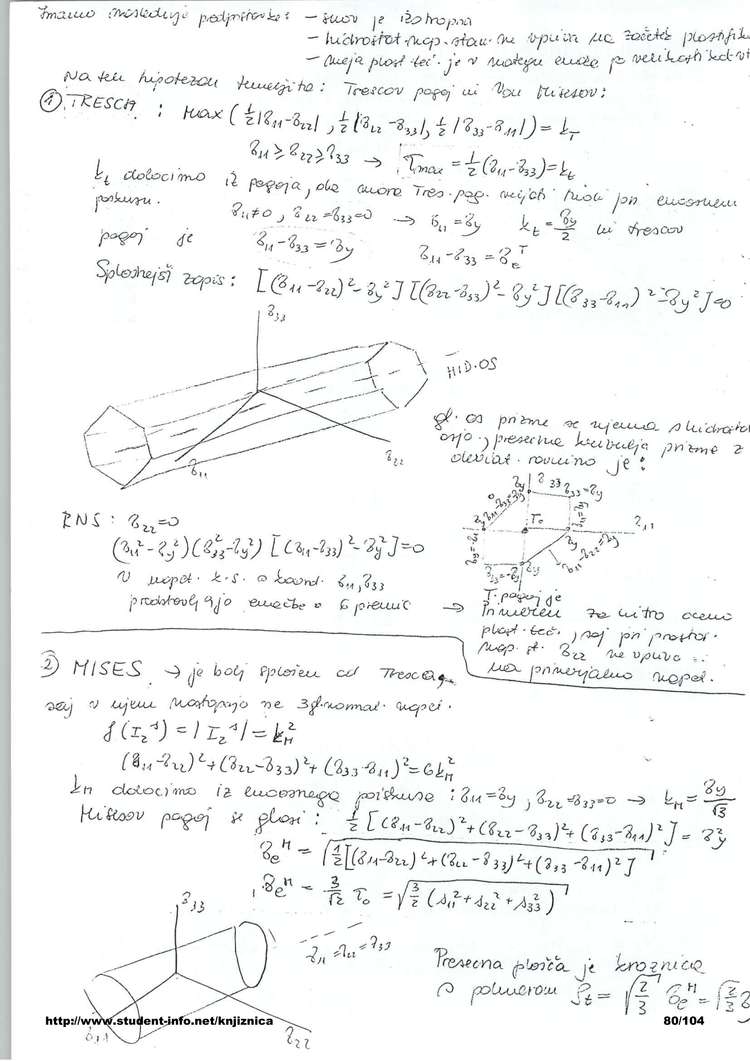 Imamo naslednje podpostavke: – snov je izotropna
– hidrostat. nap. stan. ne vpliva na začetek plastifik
– meja plast. teč. je v nategu enaka po velikosti kot v t
Na teh hipotezah temeljita: Trescov pogoj in Von Misesov:
① TRESCA : max (½|σ11-σ22|, ½|σ22-σ33|, ½|σ33-σ11|) = kT
σ11 ≥ σ22 ≥ σ33 → τmax = ½(σ11-σ33) = kt
kt določimo iz pogoja, da mora Tres. pog. veljati tudi pri enoosnem
poskusu. σ11≠0, σ22=σ33=0 → σ11=σy kt = σy/2 in trescov
pogoj je σ11-σ33=σy σ11-σ33=σe^T
Splošnejši zapis: [(σ11-σ22)²-σy²][(σ22-σ33)²-σy²][(σ33-σ11)²-σy²]=0
σ33
HID. OS
σ11
σ22
gl. os prizme se ujema s hidrostat
osjo, presečna krivulja prizme z
deviat. ravnino je:
RNS: σ22=0
(σ11²-σy²)(σ33²-σy²)[(σ11-σ33)²-σy²]=0
v napet. k.s. s koord. σ11, σ33
predstavljajo enačbe 6 premic →
σy σ33 σ33=σy
σ11
To
σy
T. pogoj je
primeren za hitro oceno
plast. teč., saj pri prostor.
nap. st. σ22 ne vpliva
na primerjalno napet.
② MISES → je bolj splošen od Tresca,
saj v njem nastopajo vse 3 gl. normal. napet.
f(I2^s) = |I2^s| = kM²
(σ11-σ22)²+(σ22-σ33)²+(σ33-σ11)²=6kM²
kM določimo iz enoosnega poizkusa: σ11=σy, σ22=σ33=0 → kM = σy/√3
Misesov pogoj se glasi: ½[(σ11-σ22)²+(σ22-σ33)²+(σ33-σ11)²] = σy²
σe^M = √(½[(σ11-σ22)²+(σ22-σ33)²+(σ33-σ11)²])
σe^M = 3/√2 τo = √(3/2 (s11²+s22²+s33²))
σ33
σ11=σ22=σ33
Presečna plošča je krožnica
s polmerom ρt = √(2/3) σe^M = √(2/3) σ
http://www.student-info.net/knjiznica
80/104
σ11
σ22